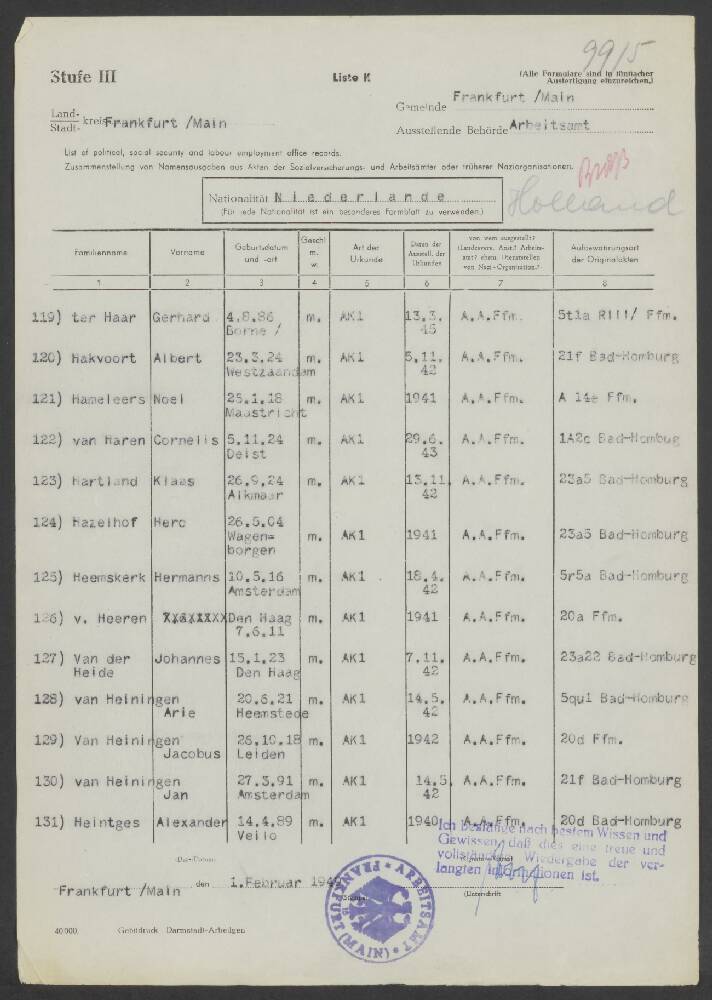 99/5
Stufe III
Liste K
(Alle Formulare sind in fünffacher
Ausfertigung einzureichen.)
Gemeinde Frankfurt /Main
Land-
Stadt- kreis Frankfurt /Main
Ausstellende Behörde Arbeitsamt
List of political, social security and labour employment office records.
Zusammenstellung von Namensausgaben aus Akten der Sozialversicherungs- und Arbeitsämter oder früherer Naziorganisationen.
Nationalität Niederlande
(Für jede Nationalität ist ein besonderes Formblatt zu verwenden.)
Holland
Familienname Vorname Geburtsdatum und -ort Geschl m. w. Art der Urkunde Daten der Ausstell. der Urkunden von wem ausgestellt? (Landesvers. Anst.? Arbeitsamt? ehem. Dienststellen von Nazi-Organisation.? Aufbewahrungsort der Originalakten
1 2 3 4 5 6 7 8
119) ter Haar Gerhard 4.8.86 m. AK1 13.3. A.A.Ffm. 5t1a RIII/ Ffm.
Borne / 45
120) Hakvoort Albert 23.3.24 m. AK1 5.11. A.A.Ffm. 21f Bad-Homburg
Westzaandam 42
121) Hameleers Noel 25.1.18 m. AK1 1941 A.A.Ffm. A 14e Ffm.
Maastricht
122) van Haren Cornelis 5.11.24 m. AK1 29.6. A.A.Ffm. 1A2c Bad-Hombug
Delst 43
123) Hartland Klaas 26.9.24 m. AK1 13.11. A.A.Ffm. 23a5 Bad-Homburg
Alkmaar 42
124) Hazelhof Herc 26.5.04
Wagen= m. AK1 1941 A.A.Ffm. 23a5 Bad-Homburg
borgen
125) Heemskerk Hermanns 10.5.16 m. AK1 18.4. A.A.Ffm. 5r5a Bad-Homburg
Amsterdam 42
126) v. Heeren Den Haag m. AK1 1941 A.A.Ffm. 20a Ffm.
7.6.11
127) Van der Johannes 15.1.23 m. AK1 7.11. A.A.Ffm. 23a22 Bad-Homburg
Heide Den Haag 42
128) van Heiningen 20.6.21 m. AK1 14.5. A.A.Ffm. 5qu1 Bad-Homburg
Arie Heemstede 42
129) Van Heiningen 26.10.18 m. AK1 1942 A.A.Ffm. 20d Ffm.
Jacobus Leiden
130) van Heiningen 27.3.91 m. AK1 14.5 A.A.Ffm. 21f Bad-Homburg
Jan Amsterdam 42
131) Heintges Alexander 14.4.89 m. AK1 1940 A.A.Ffm. 20d Bad-Homburg
Vello
Ich bestätige nach bestem Wissen und
Gewissen, daß dies eine treue und
vollständige Wiedergabe der ver-
langten Informationen ist.
(Ort/Datum)
Frankfurt /Main den 1.Februar 194
(Unterschrift
ARBEITSAMT FRANKFURT (MAIN)
40000. Gebildruck Darmstadt-Arheilgen